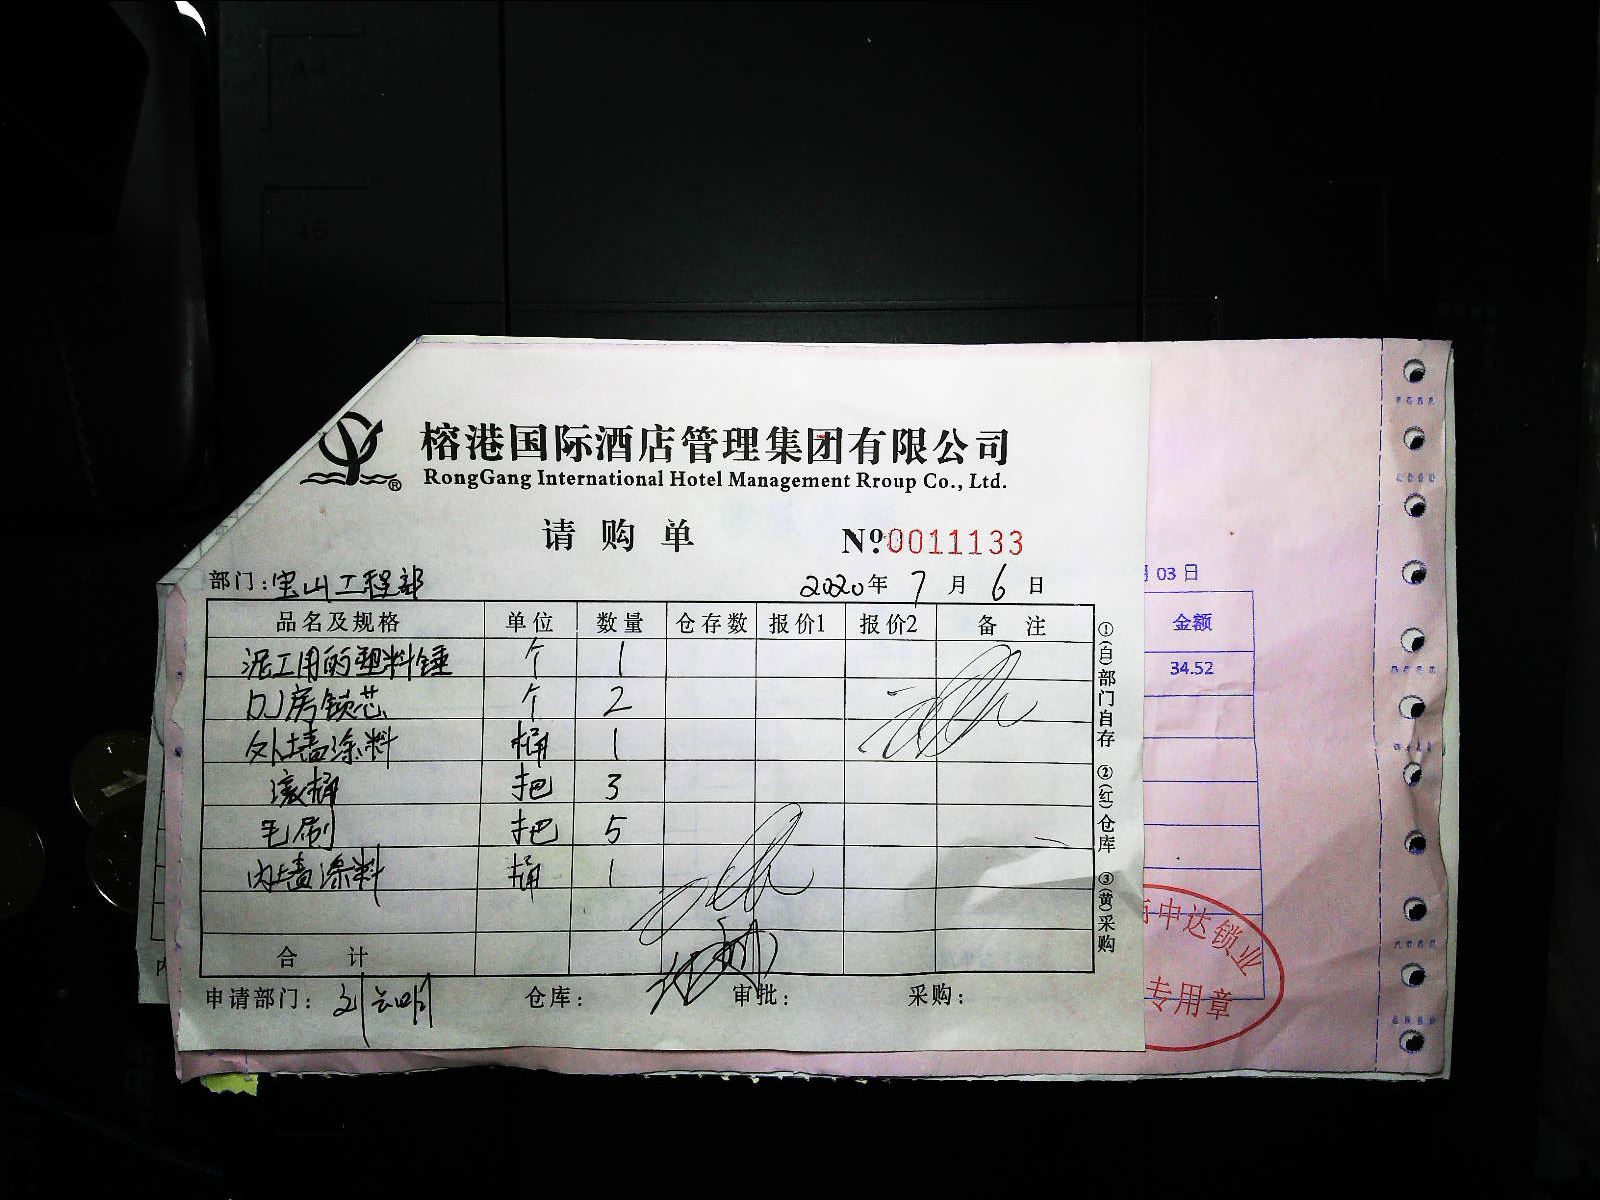 榕港国际酒店管理集团有限公司
RongGang International Hotel Management Rroup Co., Ltd.
®
请购单 Nº0011133
部门：宝山工程部 2020年7月6日
品名及规格 单位 数量 仓存数 报价1 报价2 备注
泥工用的塑料锤 个 1
DJ房锁芯 个 2
外墙涂料 桶 1
滚桶 把 3
毛刷 把 5
内墙涂料 桶 1
合计
申请部门： 仓库： 审批： 采购：
①(白)部门自存 ②(红)仓库 ③(黄)采购
03日
金额
34.52
中达锁业
专用章